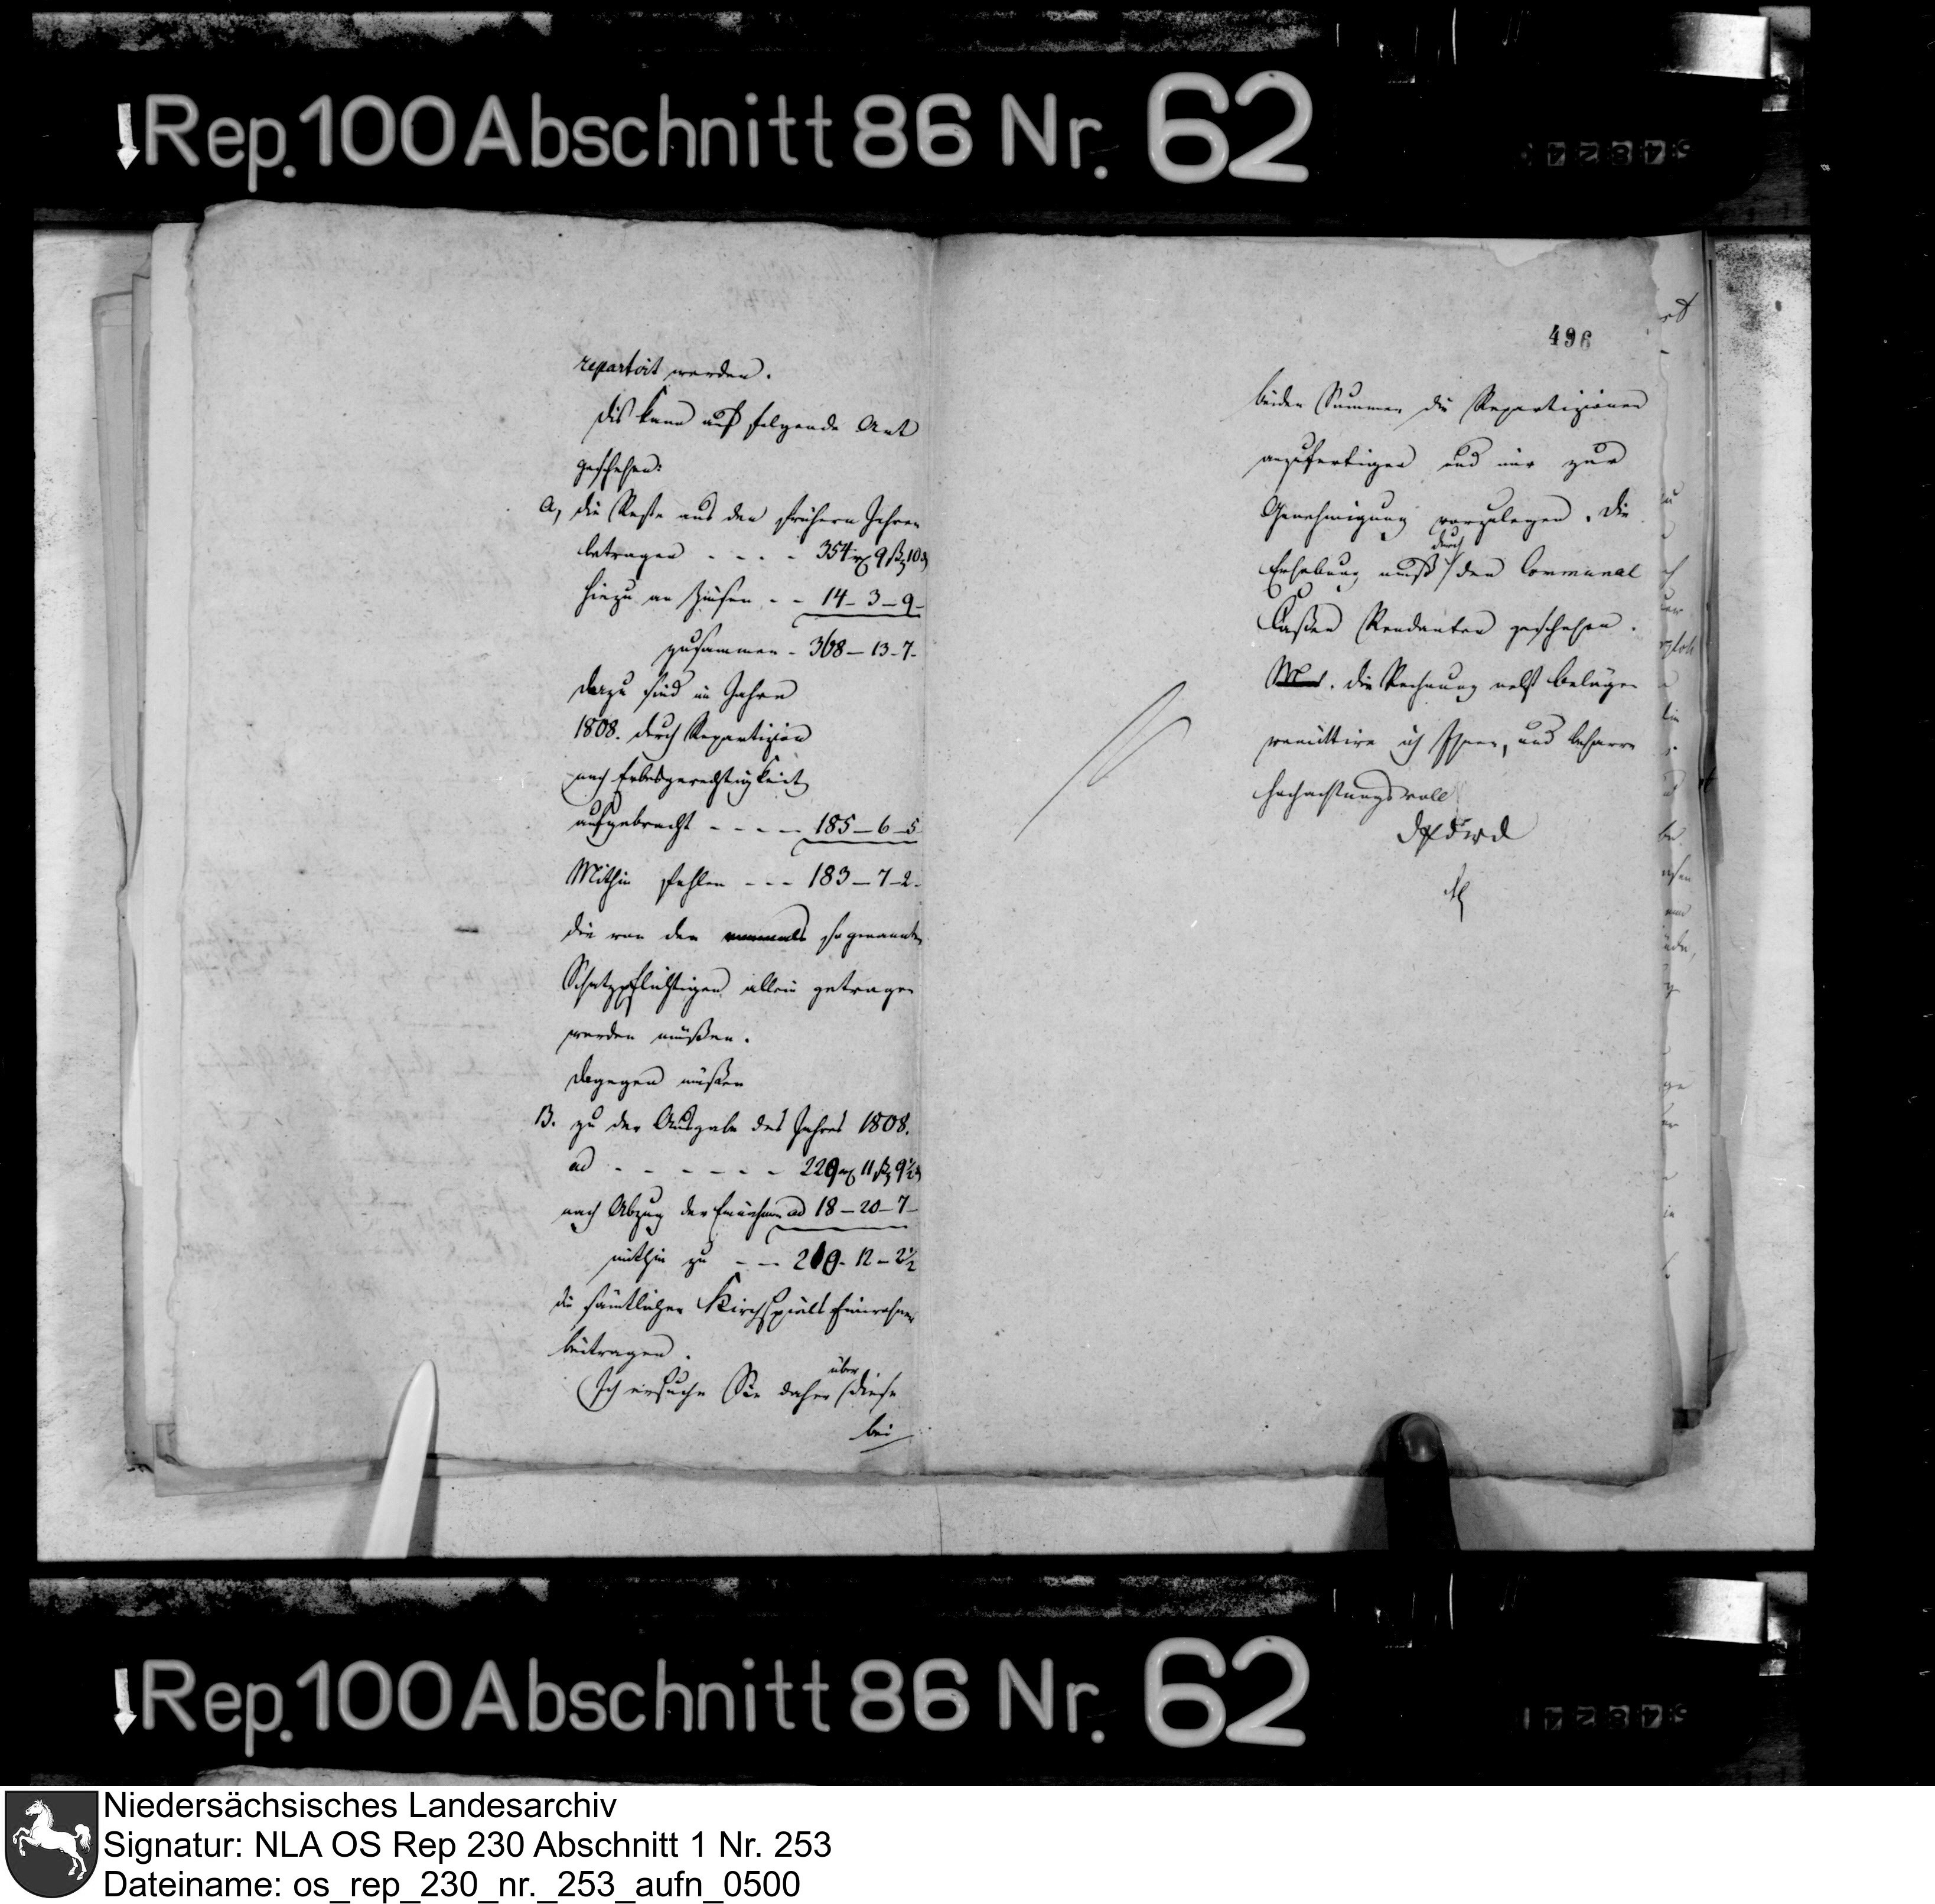 Rep. 100 Abschnitt 86 Nr. 62
repartirt werden.
Dis kann auf folgende Art
geschehen:
a, die Reste aus den frühern Jahren
betragen - - - - 354 rℓ 9 ßℓ 10 ₰
hiezu an Zinsen - - 14 - 3 - 9 -
zusammen - 368 - 13 - 7 -
dazu sind im Jahre
1808. durch Repartizion
nach Erbesgerechtigkeit
aufgebracht - - - - 185 - 6 - 5
Mithin fehlen - - - 183 - 7 - 2 -
die von den sogenannten
Schatzpflichtigen allein getragen
werden müßen.
Dagegen müßen
B. zu der Ausgabe des Jahres 1808.
ad - - - - - - 229 rℓ 11 ßℓ 9½ ₰
nach Abzug der Einnahme ad 18 - 20 - 7 -
mithin zu - - 210 - 12 - 2½
die sämtlichen Kirchspiels Einwohner
beitragen.
Ich ersuche Sie daher über diese
bei
496
beiden Summen die Repartizionen
anzufertigen und mir zur
Genehmigung vorzulegen. Die
Erhebung muß durch den Communal
Caßen Rendanten geschehen.
die Rechnung nebst Beläge
remittire ich Ihnen, und beharre
hochachtungsvoll
Rep. 100 Abschnitt 86 Nr. 62
Niedersächsisches Landesarchiv
Signatur: NLA OS Rep 230 Abschnitt 1 Nr. 253
Dateiname: os_rep_230_nr._253_aufn_0500